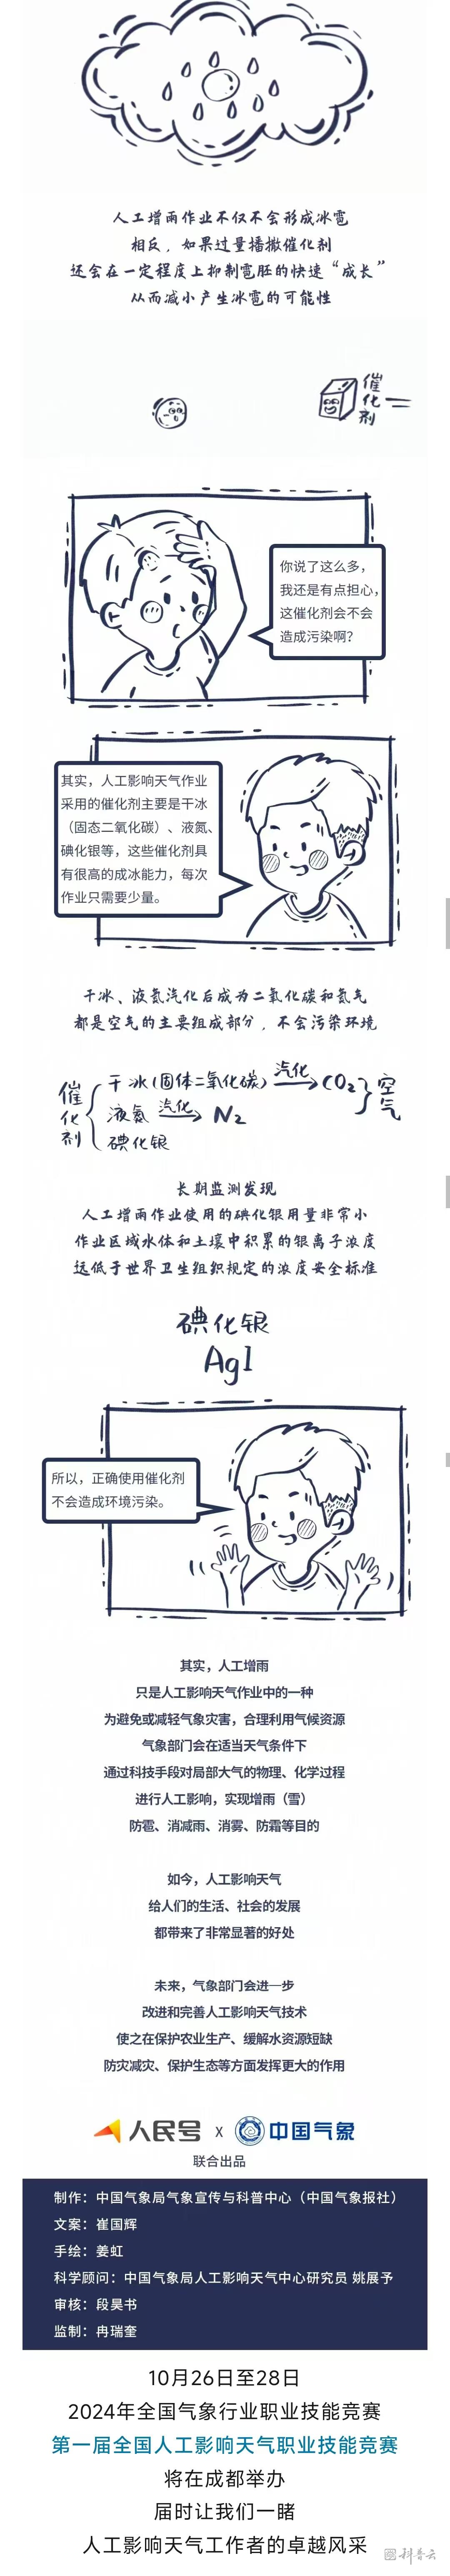 人工增雨作业不仅不会形成冰雹
相反，如果过量播撒催化剂
还会在一定程度上抑制雹胚的快速“成长”
从而减小产生冰雹的可能性
催化剂
你说了这么多，
我还是有点担心，
这催化剂会不会
造成污染啊？
其实，人工影响天气作业
采用的催化剂主要是干冰
（固态二氧化碳）、液氮、
碘化银等，这些催化剂具
有很高的成冰能力，每次
作业只需要少量。
干冰、液氮汽化后成为二氧化碳和氮气
都是空气的主要组成部分，不会污染环境
催化剂
干冰（固体二氧化碳） 汽化 CO₂
液氮 汽化 N₂
碘化银
空气
长期监测发现
人工增雨作业使用的碘化银用量非常小
作业区域水体和土壤中积累的银离子浓度
远低于世界卫生组织规定的浓度安全标准
碘化银
AgI
所以，正确使用催化剂
不会造成环境污染。
其实，人工增雨
只是人工影响天气作业中的一种
为避免或减轻气象灾害，合理利用气候资源
气象部门会在适当天气条件下
通过科技手段对局部大气的物理、化学过程
进行人工影响，实现增雨（雪）
防雹、消减雨、消雾、防霜等目的
如今，人工影响天气
给人们的生活、社会的发展
都带来了非常显著的好处
未来，气象部门会进一步
改进和完善人工影响天气技术
使之在保护农业生产、缓解水资源短缺
防灾减灾、保护生态等方面发挥更大的作用
人民号 X 中国气象
联合出品
制作：中国气象局气象宣传与科普中心（中国气象报社）
文案：崔国辉
手绘：姜虹
科学顾问：中国气象局人工影响天气中心研究员 姚展予
审核：段昊书
监制：冉瑞奎
10月26日至28日
2024年全国气象行业职业技能竞赛
第一届全国人工影响天气职业技能竞赛
将在成都举办
届时让我们一睹
人工影响天气工作者的卓越风采
科普云